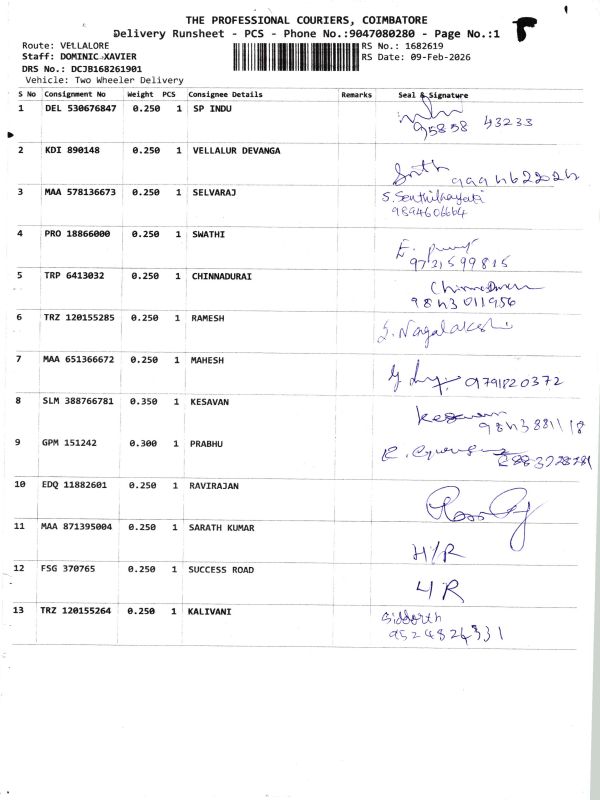 THE PROFESSIONAL COURIERS, COIMBATORE
Delivery Runsheet - PCS - Phone No.:9047080280 - Page No.:1
Route: VELLALORE RS No.: 1682619
Staff: DOMINIC XAVIER RS Date: 09-Feb-2026
DRS No.: DCJB168261901
Vehicle: Two Wheeler Delivery
S No Consignment No Weight PCS Consignee Details Remarks Seal & Signature
1 DEL 530676847 0.250 1 SP INDU
95858 43233
2 KDI 890148 0.250 1 VELLALUR DEVANGA
3 MAA 578136673 0.250 1 SELVARAJ S. Senthilnayaki
9894606664
4 PRO 18866000 0.250 1 SWATHI
5 TRP 6413032 0.250 1 CHINNADURAI
9843011956
6 TRZ 120155285 0.250 1 RAMESH S. Nagalakshi
7 MAA 651366672 0.250 1 MAHESH
9791820372
8 SLM 388766781 0.350 1 KESAVAN Kesavan
9843881118
9 GPM 151242 0.300 1 PRABHU
10 EDQ 11882601 0.250 1 RAVIRAJAN
11 MAA 871395004 0.250 1 SARATH KUMAR
H/R
12 FSG 370765 0.250 1 SUCCESS ROAD
4R
13 TRZ 120155264 0.250 1 KALIVANI Siddorth
9524824331